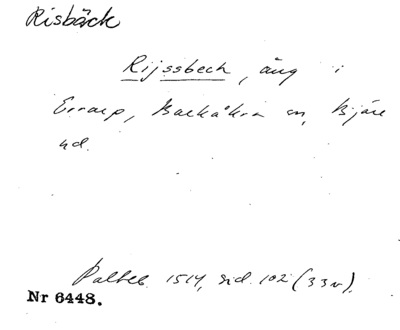 Risbäck
Rijssbeck, äng i
Errarp, Barkåkra sn, Bjäre
hd.
Palteb. 1514, sid. 102 (33v).
Nr 6448.